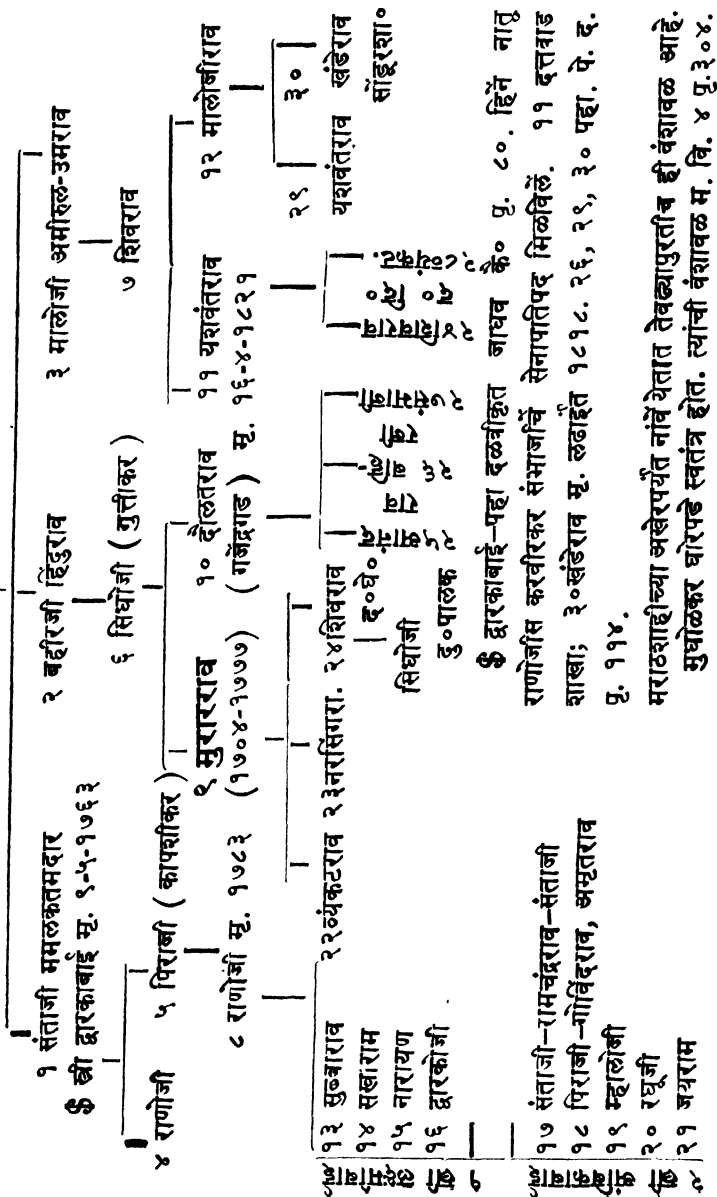 १ संताजी ममलकतमदार
२ बहीरजी हिंदुराव
३ मालोजी अमीरुल-उमराव
$ स्त्री द्वारकाबाई मृ. ९-५-१७६३
४ राणोजी
५ पिराजी ( कापशीकर )
६ सिधोजी ( गुत्तीकर )
७ शिवराव
८ राणोजी मृ. १७८३
९ मुरारराव
(१७०४-१७७७)
१० दौलतराव
(गजेंद्रगड )
११ यशवंतराव
मृ. १६-४-१८२१
१२ मालोजीराव
१३ सुब्बाराव
१४ सखाराम
१५ नारायण
१६ द्वारकोजी
१७ संताजी-रामचंद्रराव-संताजी
१८ पिराजी-गोविंदराव, अमृतराव
१९ म्हालोजी
२० रघूजी
२१ जयराम
२२व्यंकटराव
२३नरसिंगरा.
२४शिवराव
द०घे०
सिधोजी
दु०पालक
राव
२७संभाजी
२४शिवराव
२८व्यंकट.
२९
यशवंतराव
३०
खंडेराव
सांडूरशा०
$ द्वारकाबाई-पहा दळवीकृत जाधव कै० पृ. ८०. हिनें नातु
राणोजीस करवीरकर संभाजीचें सेनापतिपद मिळविलें. ११ दत्तवाड
शाखा; ३०खंडेराव मृ. लढाईत १८१८. २६, २९, ३० पहा. पे. द.
पृ. ११४.
मराठशाहीच्या अखेरपर्यंत नांवें येतात तेवढ्यापुरतीच ही वंशावळ आहे.
मुधोळकर घोरपडे स्वतंत्र होत. त्यांची वंशावळ म. वि. ४ पृ.३०४.